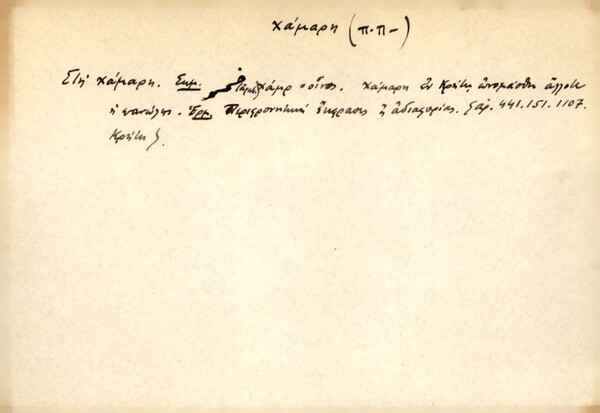 χάμαρη (π.π-)
Στή χάμαρη. Σημ. χάμρ = οἶνος. χάμαρη ἐν Κρήτῃ ὠνομάσθη ἄλλοτε
ἡ πανώλης. Ἑρμ. Περιφρονητική ἔκφρασις ἤ ἀδιαφορίας. ξαρ. 441.151.1107.
Κρήτη}.